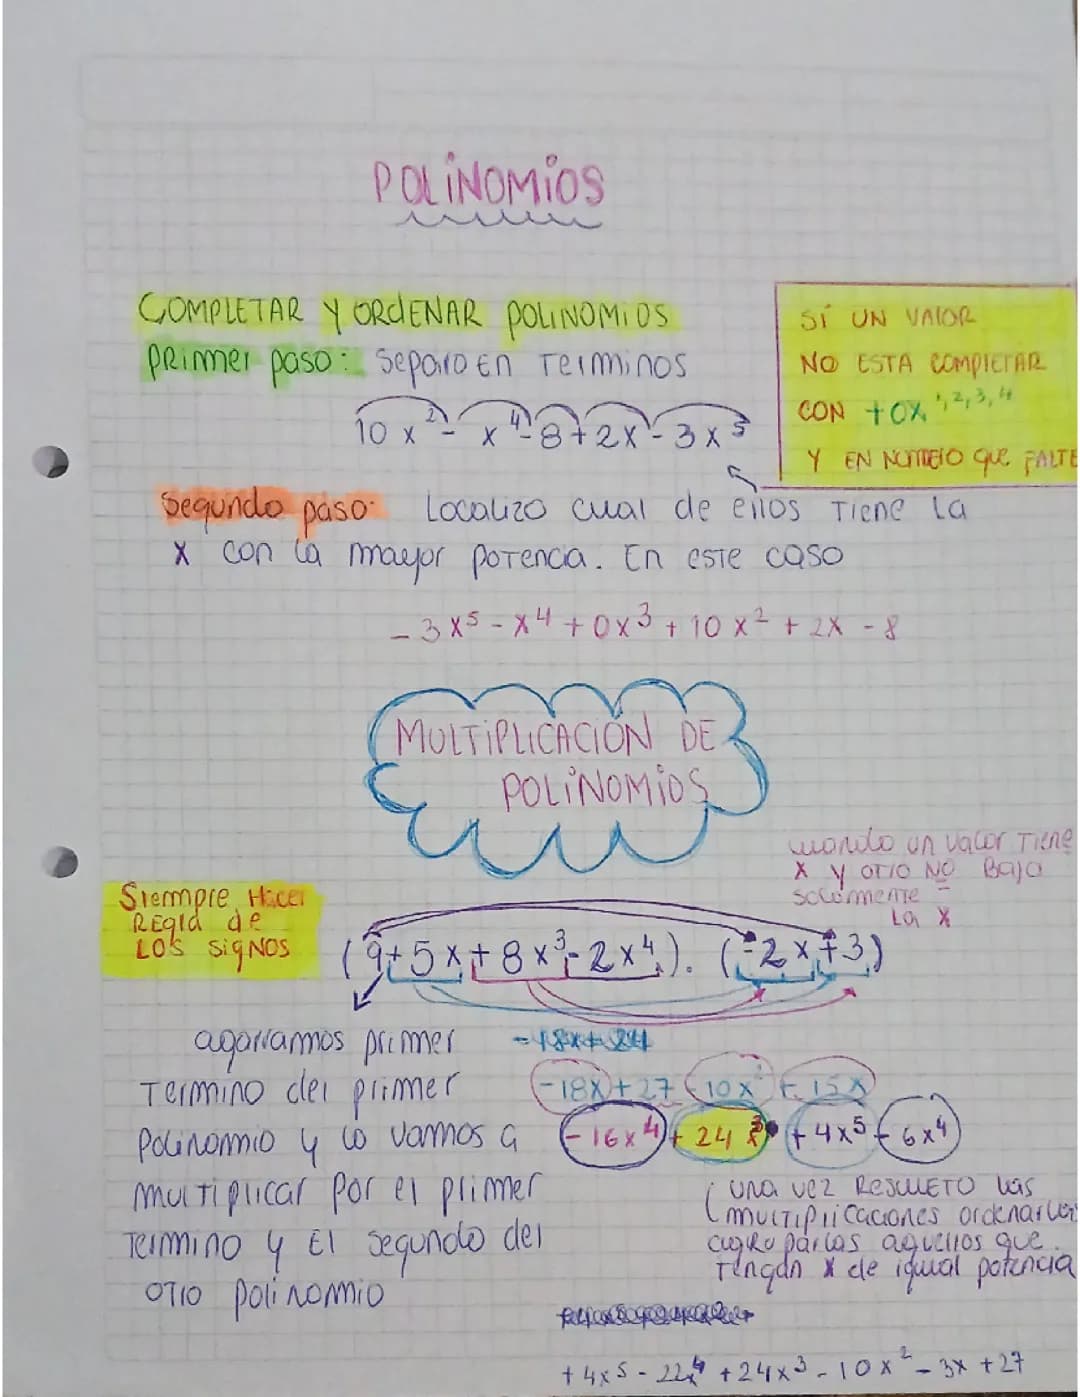 POLINOMIOS
COMPLETAR Y ORDENAR POLINOMIOS
primer paso: Separo En Terminos
10x² - x⁴ - 8 + 2x - 3x⁵
SI UN VALOR
NO ESTA COMPLETAR
CON +0x¹,²,³,⁴
Y EN NUMERO que FALTE
Segundo paso: Localizo cual de ellos Tiene la
x con la mayor potencia. En este caso
-3x⁵ - x⁴ + 0x³ + 10x² + 2x - 8
MULTIPLICACION DE
POLINOMIOS
cuando un valor Tiene
x y otro NO Baja
solamente
La x
Siempre Hacer
REgla de
LOS SigNOS
(9 + 5x + 8x³ - 2x⁴). (-2x + 3)
agarramos primer
Termino del primer
Polinomio y lo vamos a
multiplicar por el primer
Termino y El segundo del
otro polinomio
-18x + 27 - 10x² + 15x
-16x⁴ + 24x³ + 4x⁵ - 6x⁴
(una vez RESUELTO las
multiplicaciones ordenarlas
agruparlas aquellos que
tengan x de igual potencia
+4x⁵ - 22x⁴ + 24x³ - 10x² - 3x + 27